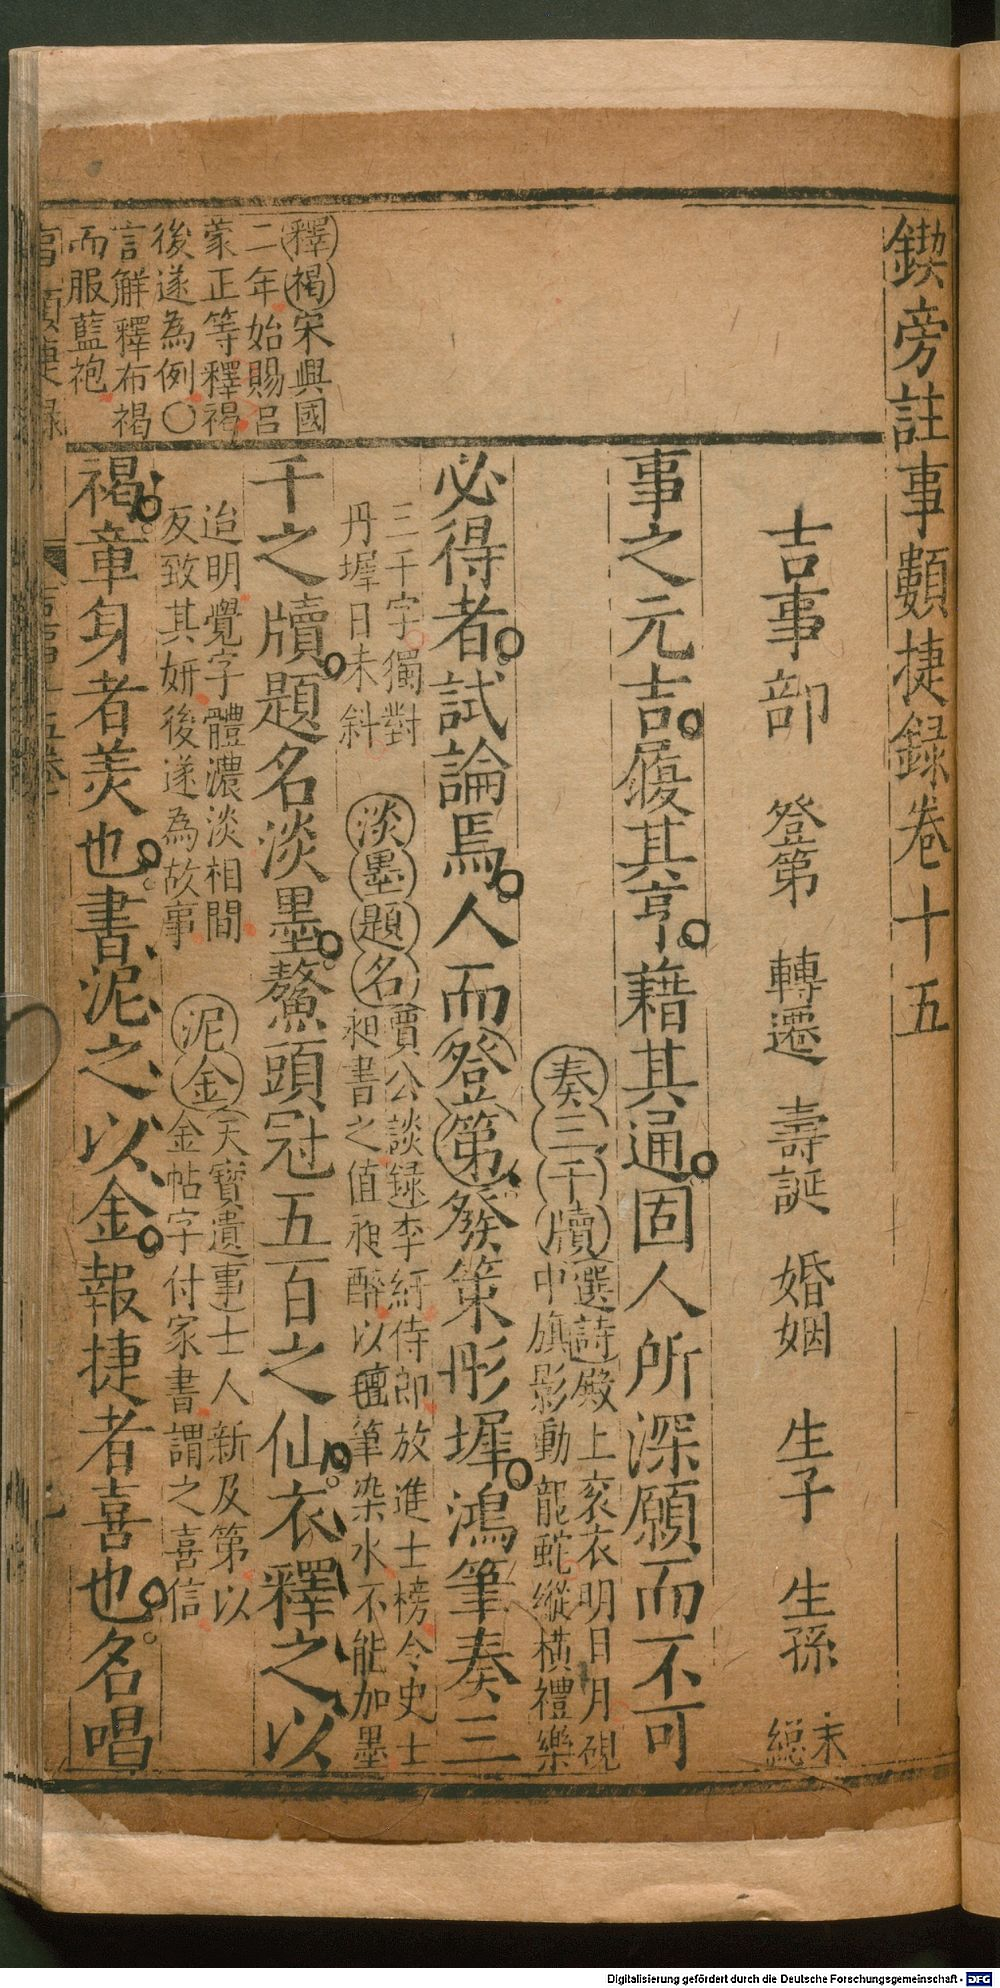 鍥旁註事類捷録卷十五
吉事部 登第 轉遷 壽誕 婚姻 生子 生孫 末總
事之元吉履其亨藉其通固人所深願而不可
奏三千牘選詩殿上衮衣明日月硯
中旗影動龍蛇縱横禮樂
必得者試論焉人而登第發策彤墀鴻筆奏三
三千字獨對
丹墀日未斜
淡墨題名賈公談録李紓侍郎放進士榜令史士
昶書之值昶醉以氊筆染水不能加墨
千之牘題名淡墨鰲頭冠五百之仙衣釋之以
迨明覺字體濃淡相間
反致其妍後遂為故事
泥金天寶遺事士人新及第以
金帖字付家書謂之喜信
褐章身者羙也書泥之以金報捷者喜也名唱
釋褐宋興國
二年始賜吕
蒙正等釋褐
後遂為例〇
言解釋布褐
而服藍袍